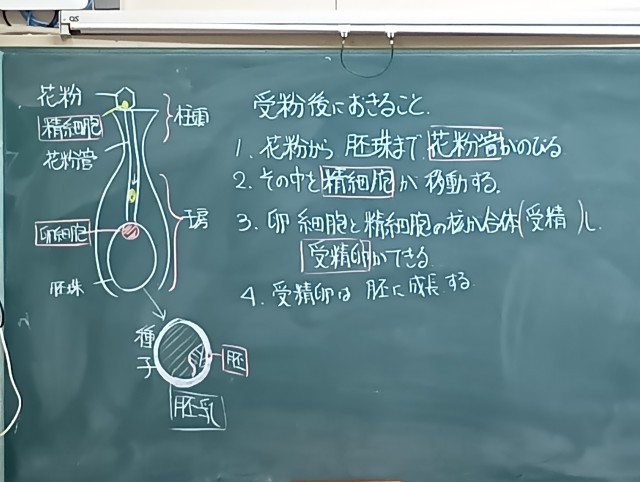 花粉
精細胞
花粉管
柱頭
子房
卵細胞
胚珠
種子
胚
胚乳
受粉後におきること.
1. 花粉から 胚珠まで 花粉管がのびる
2. その中を 精細胞 が 移動する.
3. 卵細胞と精細胞の核が合体(受精)し.
受精卵ができる
4. 受精卵は 胚に成長する